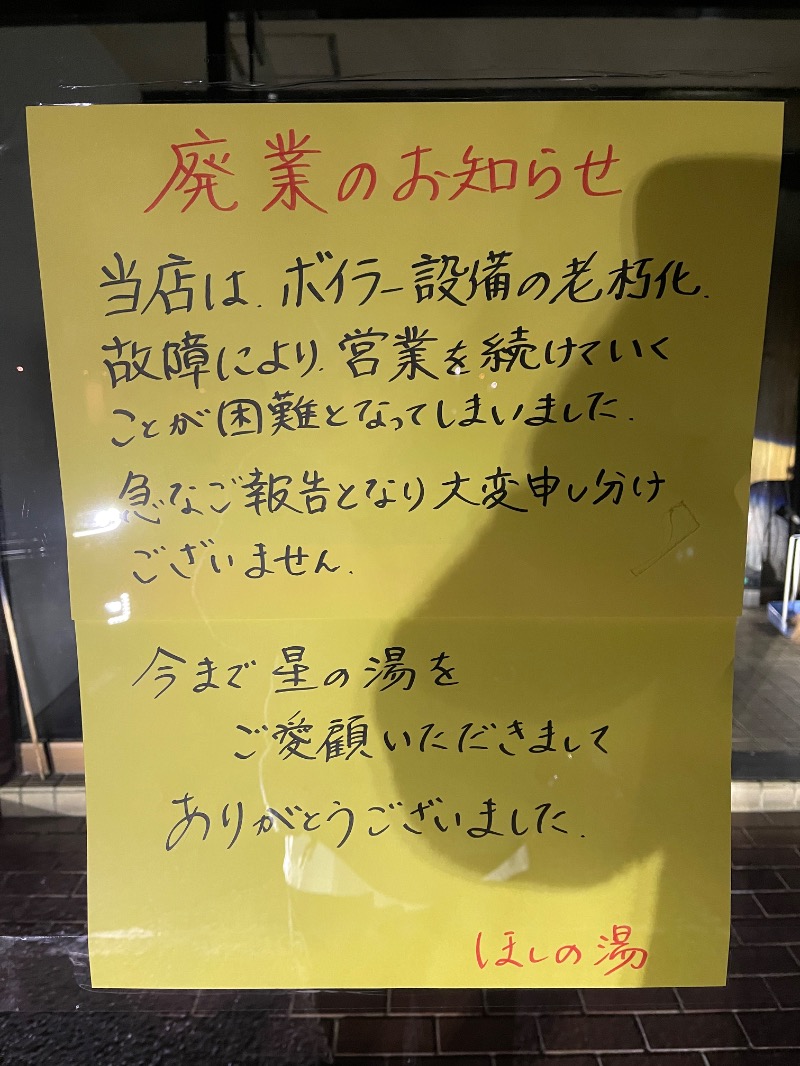 廃業のお知らせ
当店は、ボイラー設備の老朽化、
故障により、営業を続けていく
ことが困難となってしまいました。
急なご報告となり大変申し分け
ございません。
今まで星の湯を
ご愛顧いただきまして
ありがとうございました。
ほしの湯